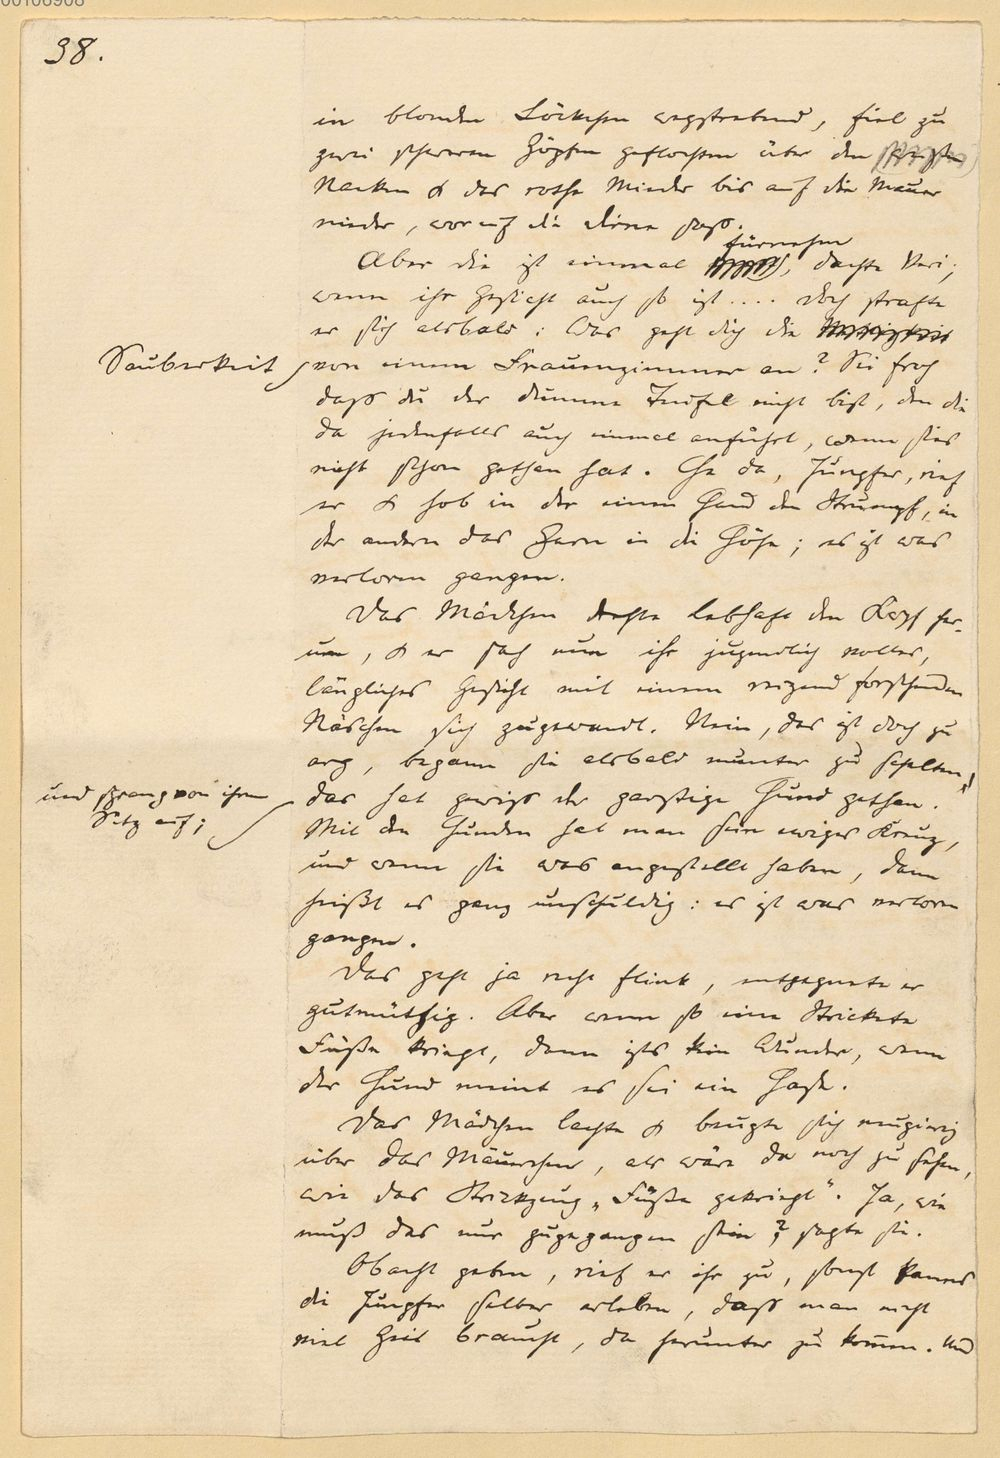 38.
in blonden Löckchen wegstrebend, fiel zu
zwei schweren Zöpfen geflochten über den
Nacken & das rothe Mieder bis auf die Mauer
nieder, worauf die Dirne saß.
fürnehm
Aber die ist einmal , dachte Veri;
wenn ihr Gesicht auch so ist .... Doch strafte
er sich alsbald: Was geht dich die
Sauberkeit
von einem Frauenzimmer an? Sei froh
daß du der dumme Teufel nicht bist, den die
da jedenfalls auch einmal anführt, wenn sies
nicht schon gethan hat. He da, Jungfer, rief
er & hob in der einen Hand den Strumpf, in
der andern das Garn in die Höhe; es ist was
verloren gangen.
Das Mädchen drehte lebhaft den Kopf her-
um, & er sah nun ihr jugendlich volles,
längliches Gesicht mit einem reizend forschenden
Näschen sich zugewandt. Nein, das ist doch zu
arg, begann sie alsbald munter zu schelten
und sprang von ihrem
Sitz auf;
das hat gewiß der garstige Hund gethan.
Mit den Hunden hat man sein ewiges Kreuz,
und wenn sie was angestellt haben, dann
heißt es ganz unschuldig: es ist was verloren
gangen.
Das geht ja recht flink, entgegnete er
gutmüthig. Aber wenn so eine Strickete
Füße kriegt, dann ists kein Wunder, wenn
der Hund meint es sei ein Hase.
Das Mädchen lachte & beugte sich neugierig
über das Mäuerchen, als wäre da noch zu sehen,
wie das Strickzeug „Füße gekriegt“. Ja, wie
muß das nur zugegangen sein? sagte sie.
Obacht geben, rief er ihr zu, sonst kanns
die Jungfer selber erleben, daß man nicht
viel Zeit braucht, da herunter zu kommen. Und